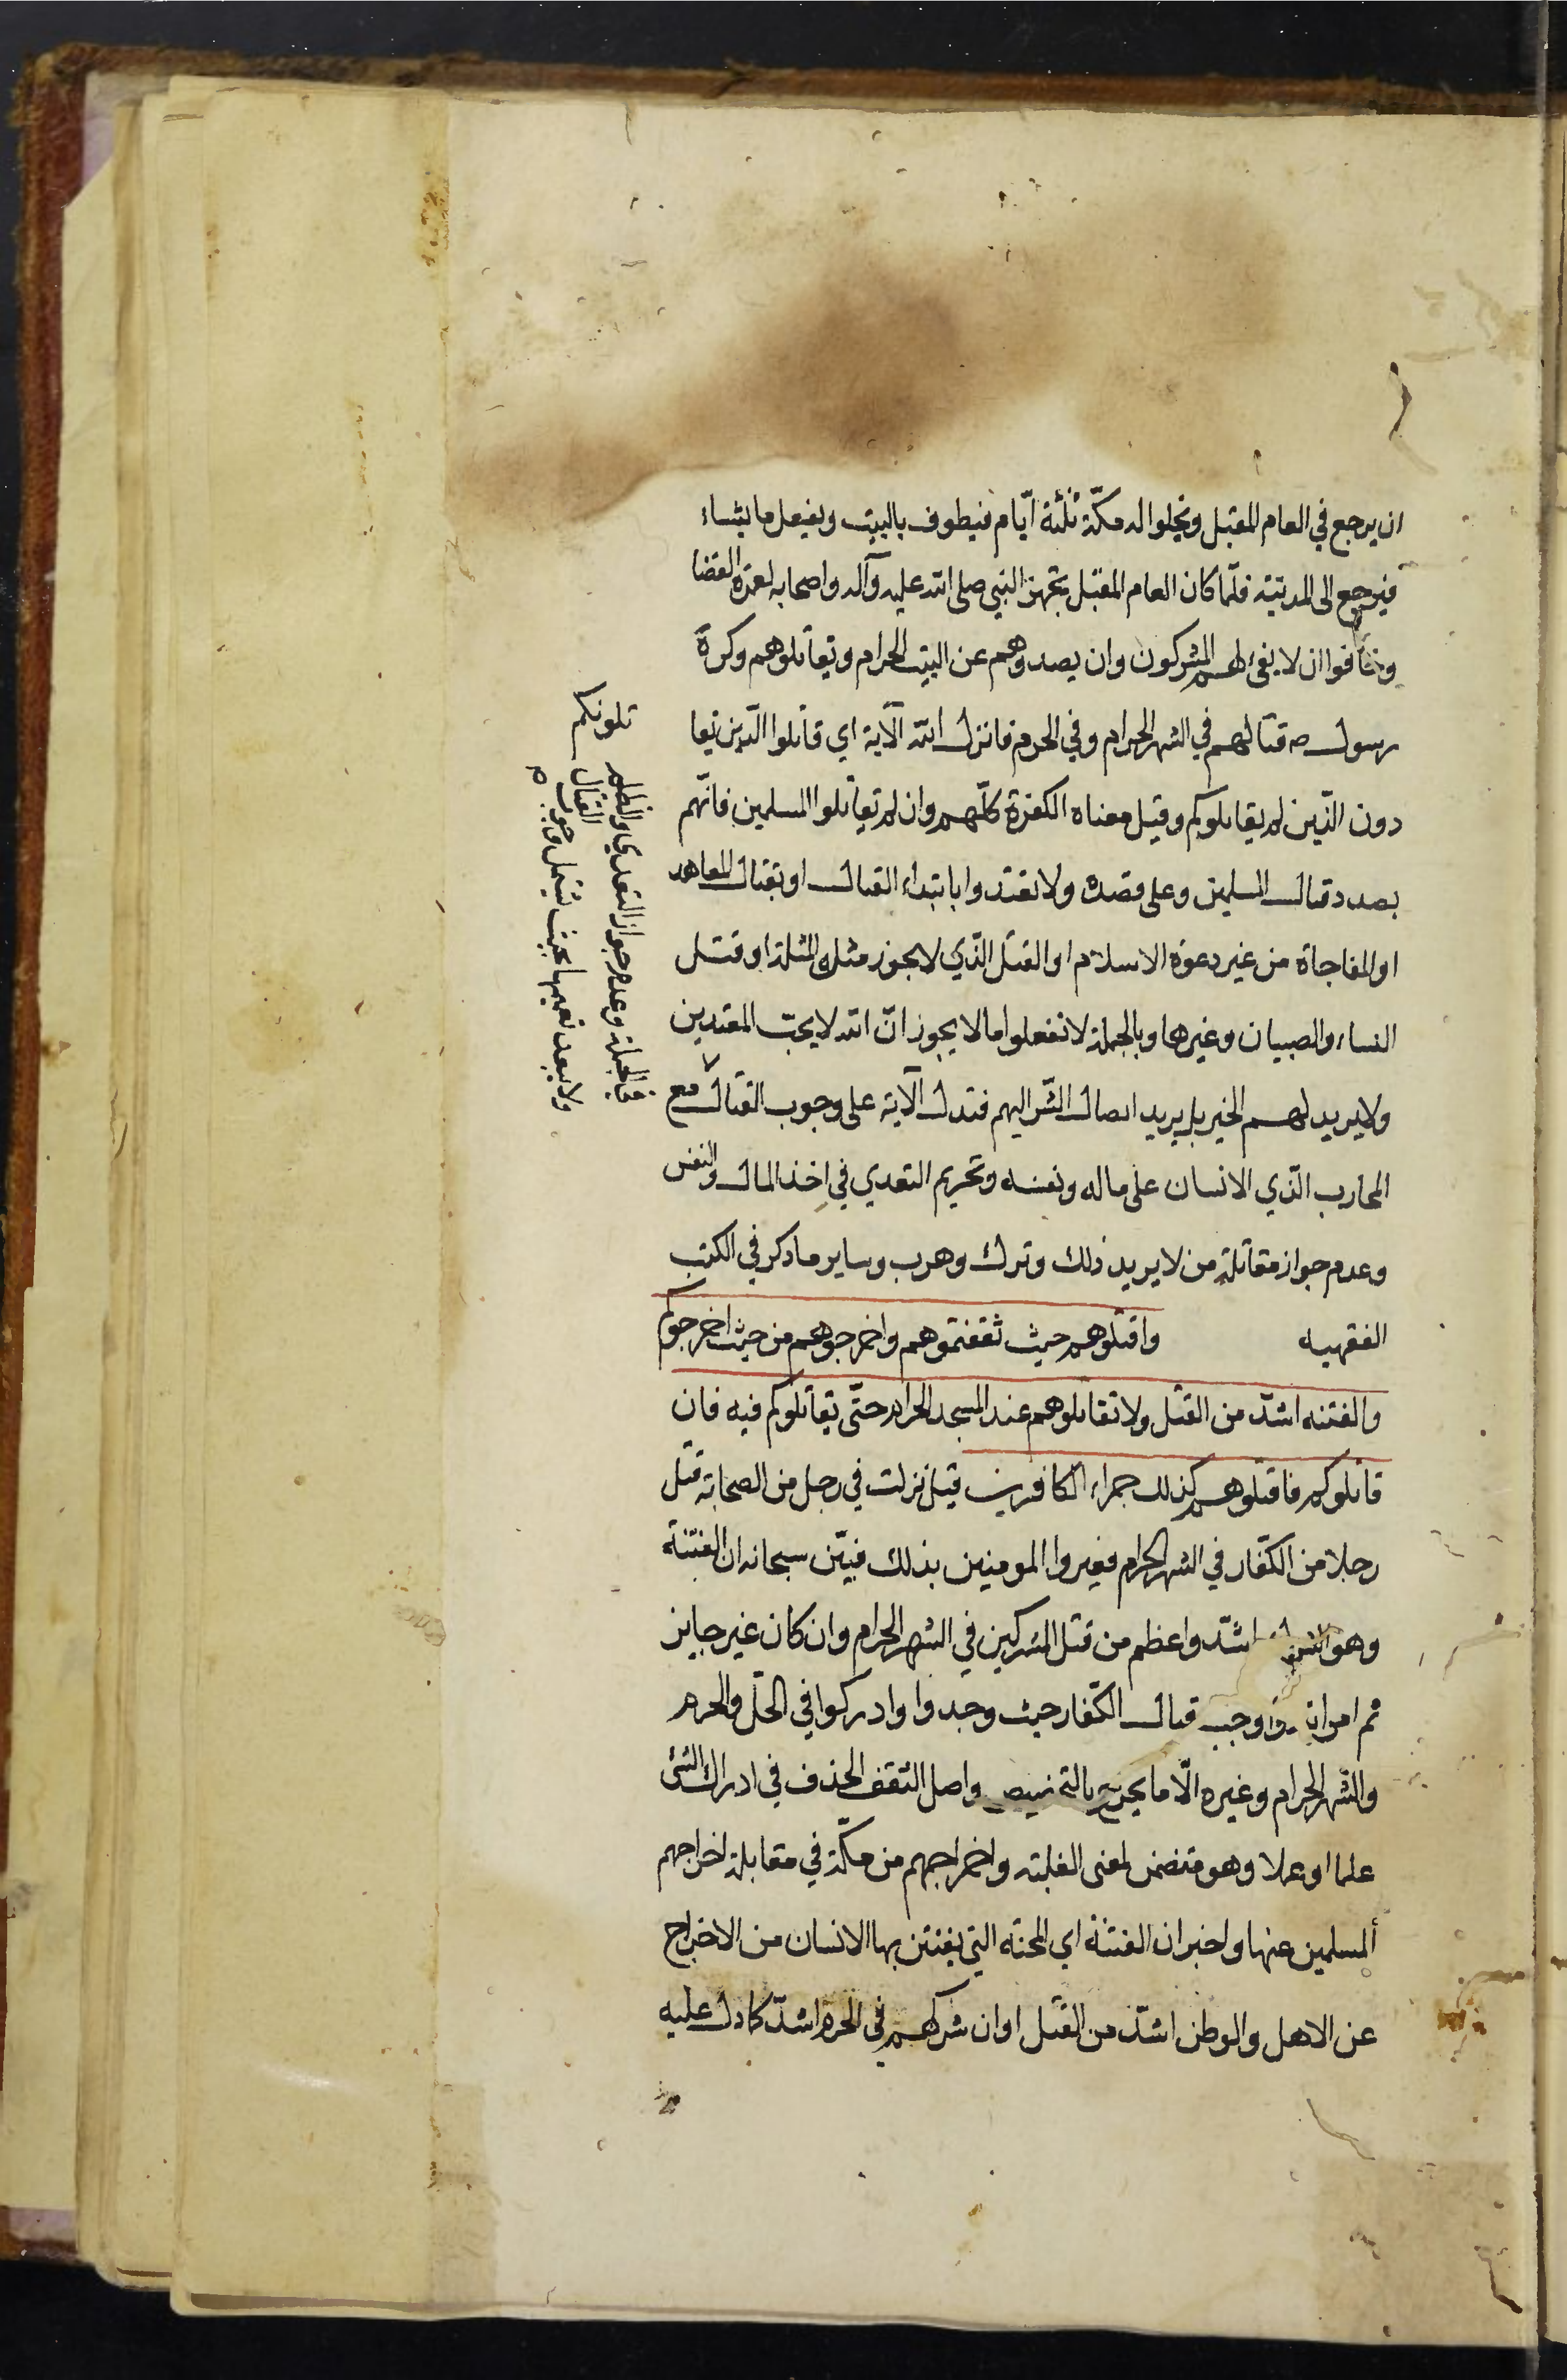 ان يرجع في العام المقبل ويخلوا له مكّة ثلثة ايّام فيطوف بالبيت ويفعل ما يشاء
فيرجع الى المدينة فلمّا كان العام المقبل تجهز النبي صلى الله عليه وآله واصحابه لعمرة القضا
وخافوا ان لا يفى لهم المشركون وان يصدوهم عن البيت الحرام ويقاتلوهم وكرة
رسول ص قتالهم في الشهر الحرام وفي الحرم فانزل الله الآية اي قاتلوا الّذين يقا
تلونكم
دون الّذين لم يقاتلوكم وقيل معناه الكفرة كلّهم وان لم يقاتلوا المسلمين فانّهم
بصدد قتال المسلمين وعلى قصده ولا تعتدوا بابتداء القتال او بقتال المعاهد
او المفاجاة من غير دعوة الاسلام او القتل الّذي لا يجوز مثل المثلة او قتل
النساء والصبيان وغيرها وبالجملة لا تفعلوا ما لا يجوز انّ الله لا يحبّ المعتدين
ولا يريد لهم الخير بل يريد ايصال الشّر اليهم فتدل الآية على وجوب القتال مع
المحارب الّذي الانسان على ماله ونفسه وتحريم التعدي في اخذ المال والنفس
وعدم جواز مقاتلة من لا يريد ذلك وترك وهرب وساير ما ذكر في الكتب
الفقهيه واقتلوهم حيث ثقفتموهم واخرجوهم من حيث اخرجوكم
والفتنه اشدّ من القتل ولا تقاتلوهم عند المسجد الحرام حتّى يقاتلوكم فيه فان
قاتلوكم فاقتلوهم كذلك جزاء الكافرين قيل نزلت في رجل من الصحابة قتل
رجلا من الكفّار في الشهر الحرام فعيروا المومنين بذلك فبيّن سبحانه ان الفتنة
وهو الشرك اشدّ واعظم من قتل المشركين في الشهر الحرام وان كان غير جايز
ثم امر واوجب قتال الكفّار حيث وجدوا وادركوا في الحلّ والحرم
والشّهر الحرام وغيره الّا ما يخرج بالتخصيص واصل الثقف الحذف في ادراك الشئ
علما او عملا وهو متضمن لمعنى الغلبة واخراجهم من مكّة في مقابلة اخراجهم
المسلمين عنها واخبر ان الفتنة اي المحنة التي يفتتن بها الانسان من الاخراج
عن الاهل والوطن اشدّ من القتل او ان شركهم في الحرم اشدّ كما دل عليه
في الجملة وعدم جواز التعدي والظلم
ولا يبعد تعميمها بحيث تشمل وجوب القتال